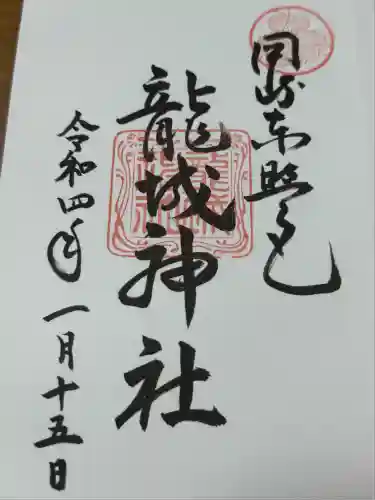 岡崎東照宮
龍城神社
令和四年 一月十五日